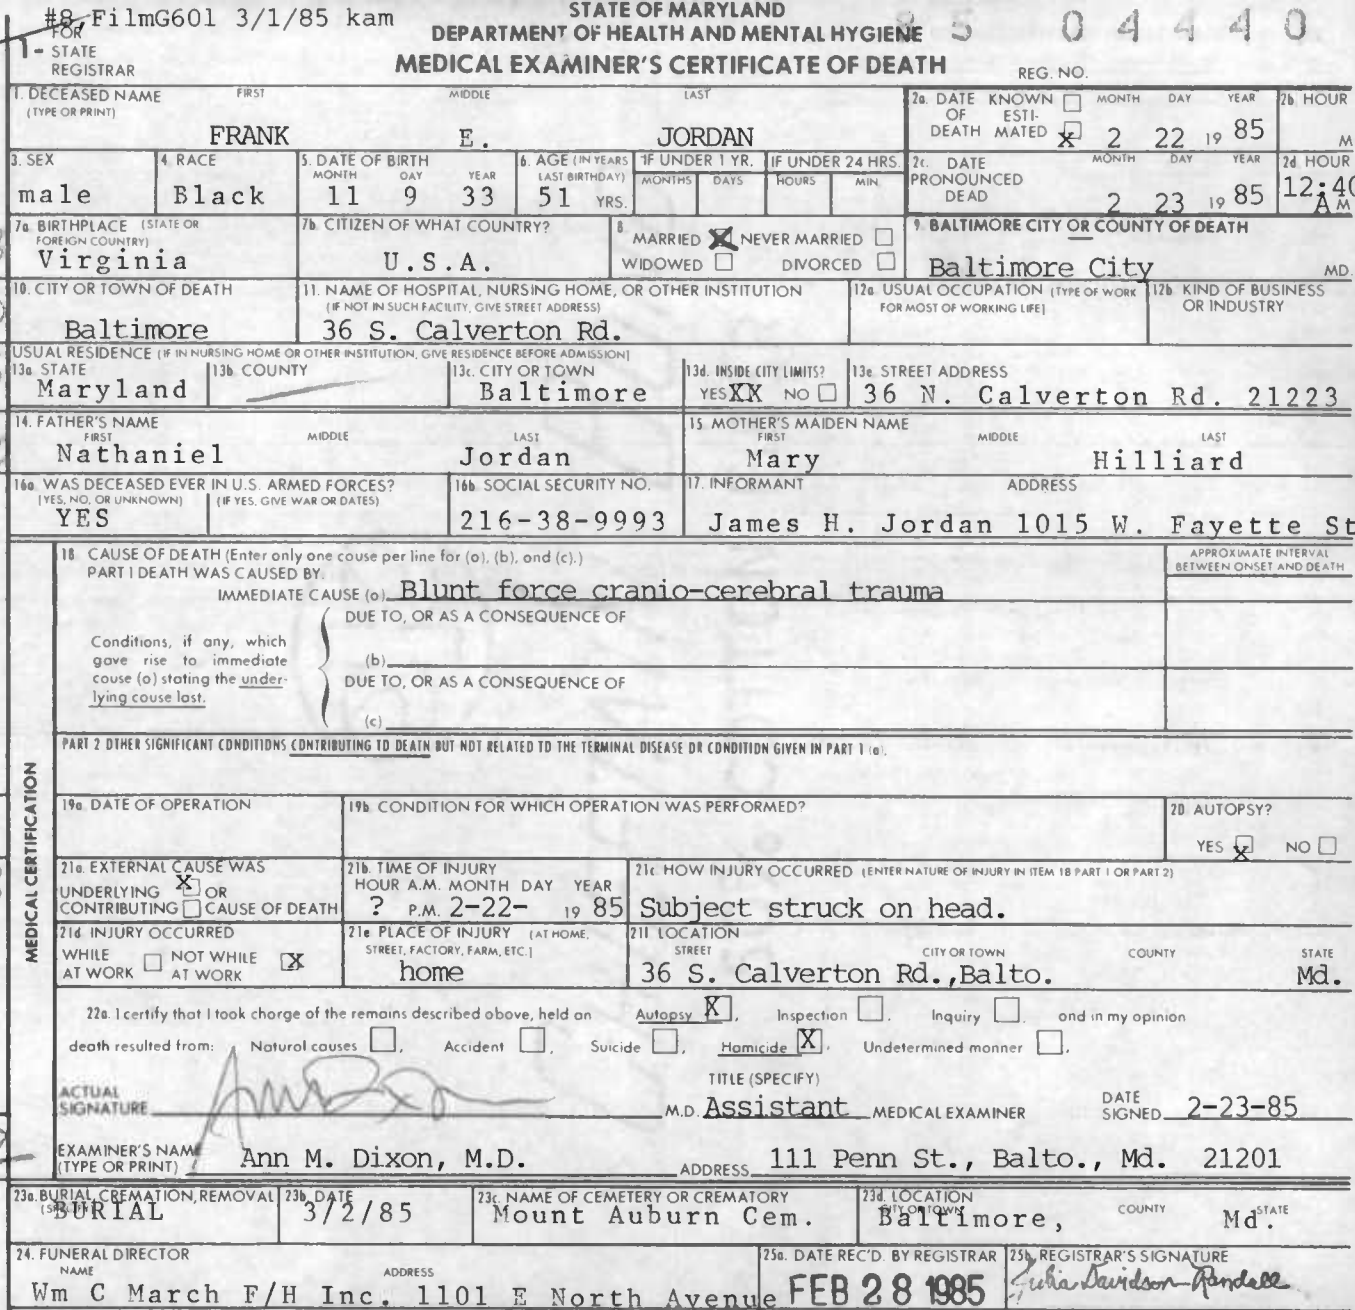 #8 FilmG601 3/1/85 kam
STATE OF MARYLAND
DEPARTMENT OF HEALTH AND MENTAL HYGIENE
85 04440
FOR
1- STATE
REGISTRAR
MEDICAL EXAMINER'S CERTIFICATE OF DEATH
REG. NO.
1. DECEASED NAME FIRST MIDDLE LAST
(TYPE OR PRINT)
FRANK E. JORDAN
2a. DATE KNOWN ☐ MONTH DAY YEAR
OF ESTI-
DEATH MATED X 2 22 19 85
2b HOUR
M
3. SEX
male
4. RACE
Black
5. DATE OF BIRTH
MONTH DAY YEAR
11 9 33
6. AGE (IN YEARS
LAST BIRTHDAY)
51 YRS.
IF UNDER 1 YR.
MONTHS DAYS
IF UNDER 24 HRS.
HOURS MIN.
2c. DATE MONTH DAY YEAR
PRONOUNCED
DEAD 2 23 19 85
2d HOUR
12:40
A M
7a BIRTHPLACE (STATE OR
FOREIGN COUNTRY)
Virginia
7b. CITIZEN OF WHAT COUNTRY?
U.S.A.
8.
MARRIED X NEVER MARRIED ☐
WIDOWED ☐ DIVORCED ☐
9. BALTIMORE CITY OR COUNTY OF DEATH
Baltimore City MD.
10. CITY OR TOWN OF DEATH
Baltimore
11. NAME OF HOSPITAL, NURSING HOME, OR OTHER INSTITUTION
(IF NOT IN SUCH FACILITY, GIVE STREET ADDRESS)
36 S. Calverton Rd.
12a. USUAL OCCUPATION (TYPE OF WORK
FOR MOST OF WORKING LIFE)
12b. KIND OF BUSINESS
OR INDUSTRY
USUAL RESIDENCE (IF IN NURSING HOME OR OTHER INSTITUTION, GIVE RESIDENCE BEFORE ADMISSION)
13a STATE
Maryland
13b COUNTY
13c. CITY OR TOWN
Baltimore
13d. INSIDE CITY LIMITS?
YES XX NO ☐
13e STREET ADDRESS
36 N. Calverton Rd. 21223
14. FATHER'S NAME
FIRST MIDDLE LAST
Nathaniel Jordan
15. MOTHER'S MAIDEN NAME
FIRST MIDDLE LAST
Mary Hilliard
16a. WAS DECEASED EVER IN U.S. ARMED FORCES?
(YES, NO, OR UNKNOWN) (IF YES, GIVE WAR OR DATES)
YES
16b. SOCIAL SECURITY NO.
216-38-9993
17. INFORMANT ADDRESS
James H. Jordan 1015 W. Fayette St
MEDICAL CERTIFICATION
18 CAUSE OF DEATH (Enter only one cause per line for (a), (b), and (c).)
PART I DEATH WAS CAUSED BY.
IMMEDIATE CAUSE (a) Blunt force cranio-cerebral trauma
APPROXIMATE INTERVAL
BETWEEN ONSET AND DEATH
DUE TO, OR AS A CONSEQUENCE OF
Conditions, if any, which
gave rise to immediate
cause (a) stating the under-
lying cause last.
(b)
DUE TO, OR AS A CONSEQUENCE OF
(c)
PART 2 OTHER SIGNIFICANT CONDITIONS CONTRIBUTING TO DEATH BUT NOT RELATED TO THE TERMINAL DISEASE OR CONDITION GIVEN IN PART 1 (a).
19a. DATE OF OPERATION
19b. CONDITION FOR WHICH OPERATION WAS PERFORMED?
20 AUTOPSY?
YES X NO ☐
21a. EXTERNAL CAUSE WAS
UNDERLYING X OR
CONTRIBUTING ☐ CAUSE OF DEATH
21b. TIME OF INJURY
HOUR A.M. MONTH DAY YEAR
? P.M. 2-22- 19 85
21c. HOW INJURY OCCURRED (ENTER NATURE OF INJURY IN ITEM 18 PART 1 OR PART 2)
Subject struck on head.
21d INJURY OCCURRED
WHILE NOT WHILE
AT WORK ☐ AT WORK X
21e PLACE OF INJURY (AT HOME,
STREET, FACTORY, FARM, ETC.)
home
21f LOCATION
STREET CITY OR TOWN COUNTY STATE
36 S. Calverton Rd.,Balto. Md.
22a. I certify that I took charge of the remains described above, held an Autopsy X, Inspection ☐. Inquiry ☐. and in my opinion
death resulted from: Natural causes ☐, Accident ☐, Suicide ☐, Homicide X. Undetermined manner ☐.
ACTUAL
SIGNATURE Ann Dixon
TITLE (SPECIFY)
M.D. Assistant MEDICAL EXAMINER
DATE
SIGNED 2-23-85
EXAMINER'S NAME
(TYPE OR PRINT) Ann M. Dixon, M.D.
ADDRESS 111 Penn St., Balto., Md. 21201
23a. BURIAL, CREMATION, REMOVAL
BURIAL
23b. DATE
3/2/85
23c. NAME OF CEMETERY OR CREMATORY
Mount Auburn Cem.
23d. LOCATION
CITY OR TOWN COUNTY STATE
Baltimore, Md.
24. FUNERAL DIRECTOR
NAME ADDRESS
Wm C March F/H Inc. 1101 E North Avenue
25a. DATE REC'D. BY REGISTRAR
FEB 28 1985
25b. REGISTRAR'S SIGNATURE
Julia Davidson-Randall